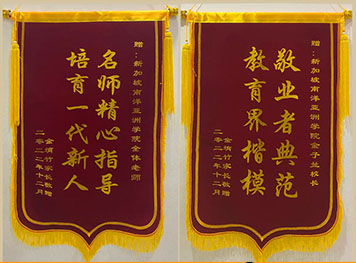 赠：新加坡南洋亚洲学院全体老师
名师精心指导
培育一代新人
家长敬赠
二零二二年十二月
赠：新加坡南洋亚洲学院
敬业者典范
教育界楷模
家长敬赠
二零二二年十二月